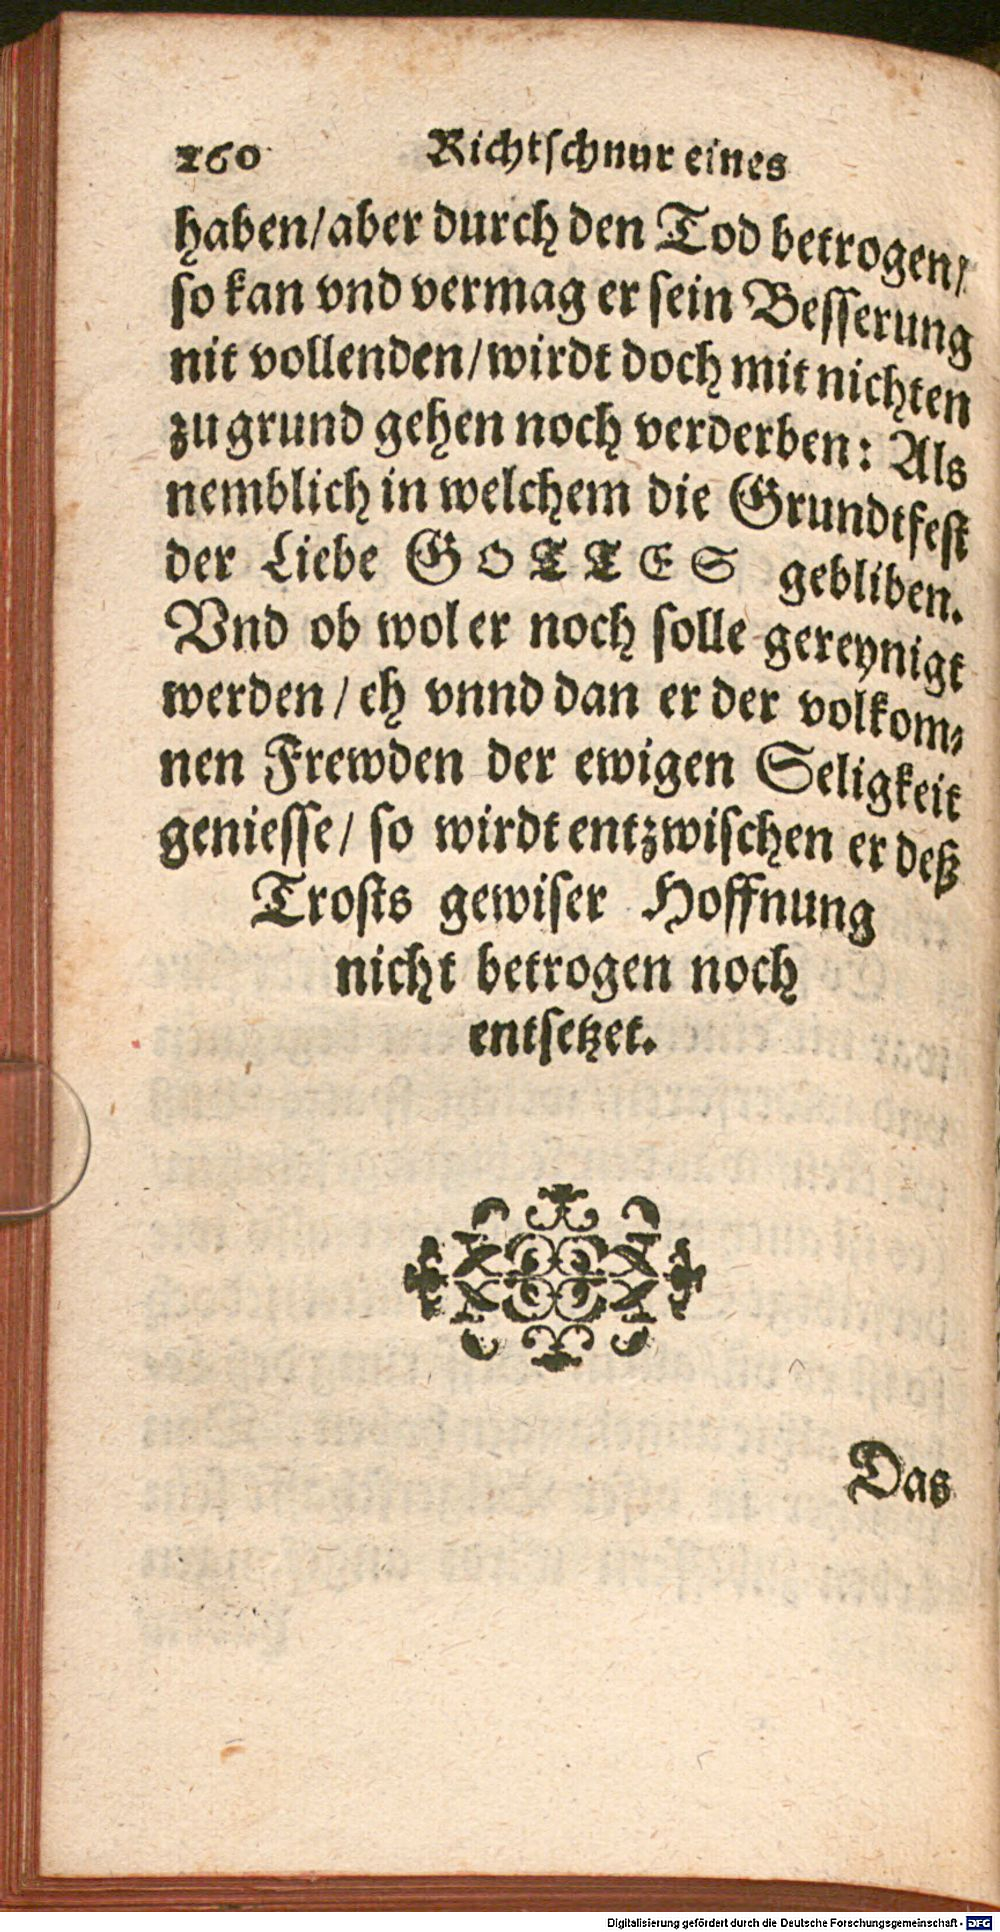 260 Richtschnur eines
haben/aber durch den Tod betrogen/
so kan vnd vermag er sein Besserung
nit vollenden/wirdt doch mit nichten
zu grund gehen noch verderben: Als
nemblich in welchem die Grundtfest
der Liebe GOTTES gebliben.
Vnd ob wol er noch solle gereynigt
werden/ eh vnnd dan er der volkom⸗
nen Frewden der ewigen Seligkeit
geniesse/ so wirdt entzwischen er deß
Trosts gewiser Hoffnung
nicht betrogen noch
entsetzet.
Das
Digitalisierung gefördert durch die Deutsche Forschungsgemeinschaft - DFG